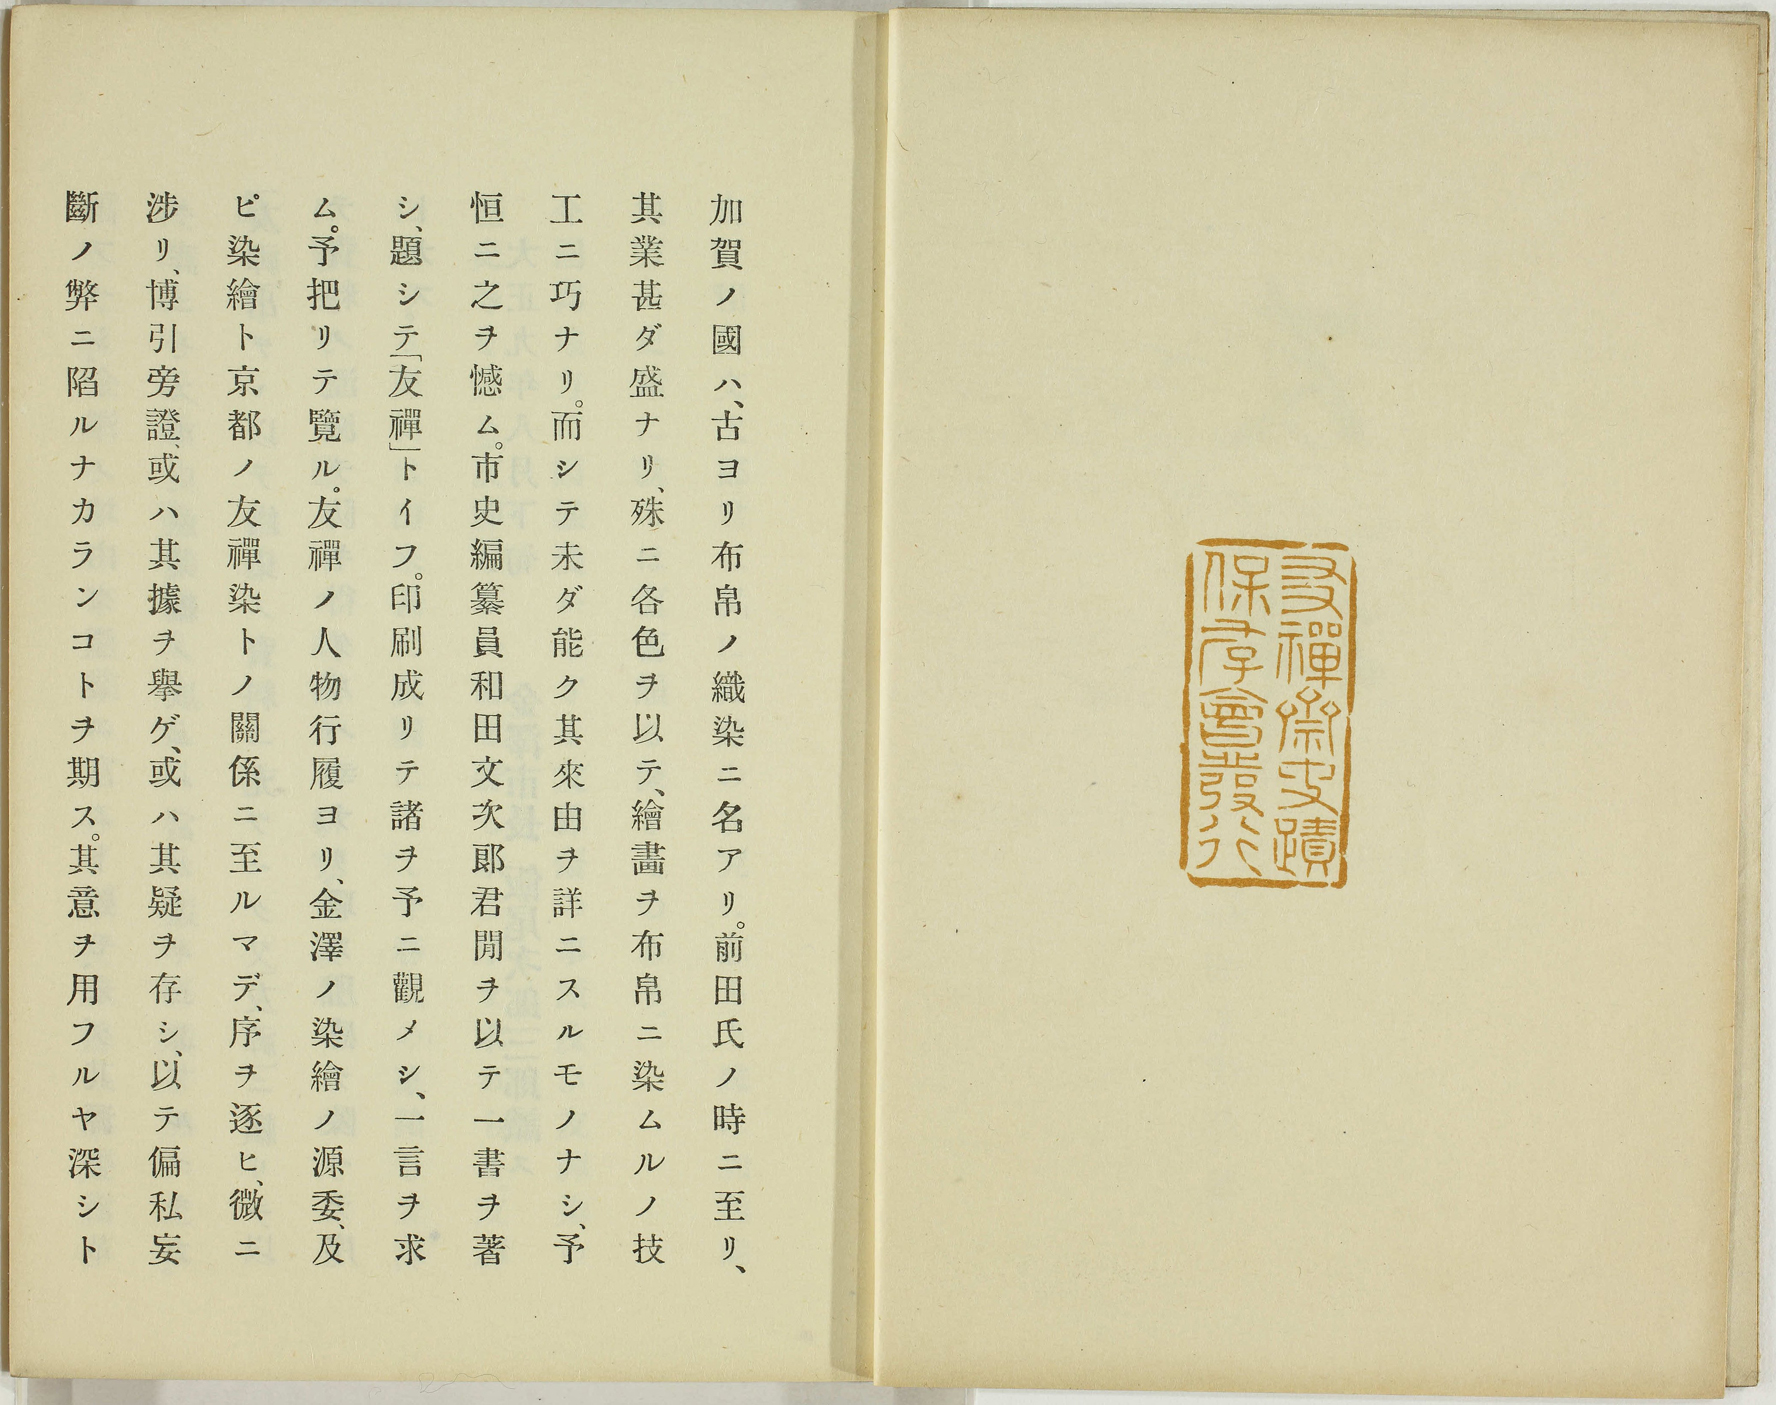 友禪齋史蹟
保存會發行
加賀ノ國ハ、古ヨリ布帛ノ織染ニ名アリ。前田氏ノ時ニ至リ、
其業甚ダ盛ナリ、殊ニ各色ヲ以テ、繪畵ヲ布帛ニ染ムルノ技
工ニ巧ナリ。而シテ未ダ能ク其來由ヲ詳ニスルモノナシ、予
恒ニ之ヲ憾ム。市史編纂員和田文次郎君閒ヲ以テ一書ヲ著
シ、題シテ「友禪」トイフ。印刷成リテ諸ヲ予ニ觀メシ、一言ヲ求
ム。予把リテ覽ル。友禪ノ人物行履ヨリ、金澤ノ染繪ノ源委、及
ビ染繪ト京都ノ友禪染トノ關係ニ至ルマデ、序ヲ逐ヒ、微ニ
涉リ、博引旁證、或ハ其據ヲ擧ゲ、或ハ其疑ヲ存シ、以テ偏私妄
斷ノ弊ニ陷ルナカランコトヲ期ス。其意ヲ用フルヤ深シト